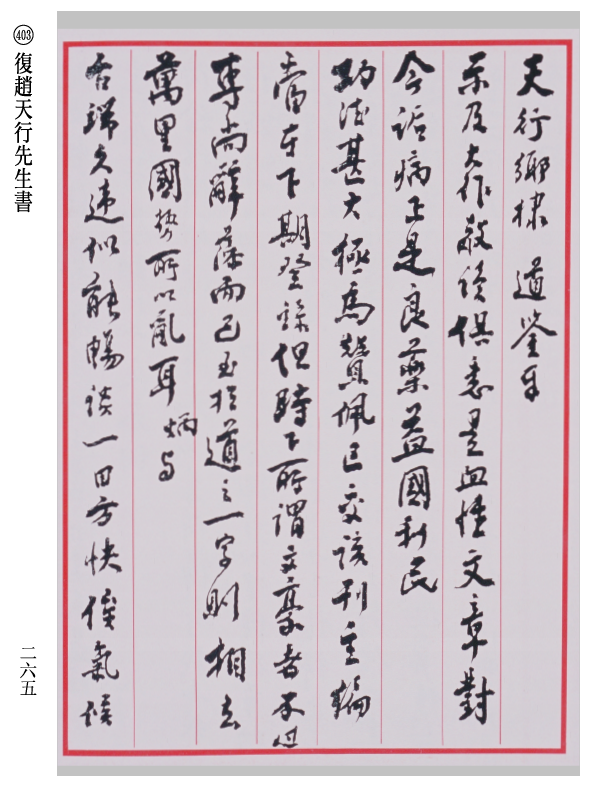 ㊃ 復趙天行先生書
天行鄉棣 道鑒手
示及大作敬讀俱悉是血性文章對
今詬病正是良藥益國利民
功德甚大極為贊佩已交該刊主編
當在下期登錄但時下所謂文豪者不過
專尚辭藻而已至於道之一字則相去
萬里國勢所以亂耳炳与
台端久違似能暢談一回方快俟氣候
二六五